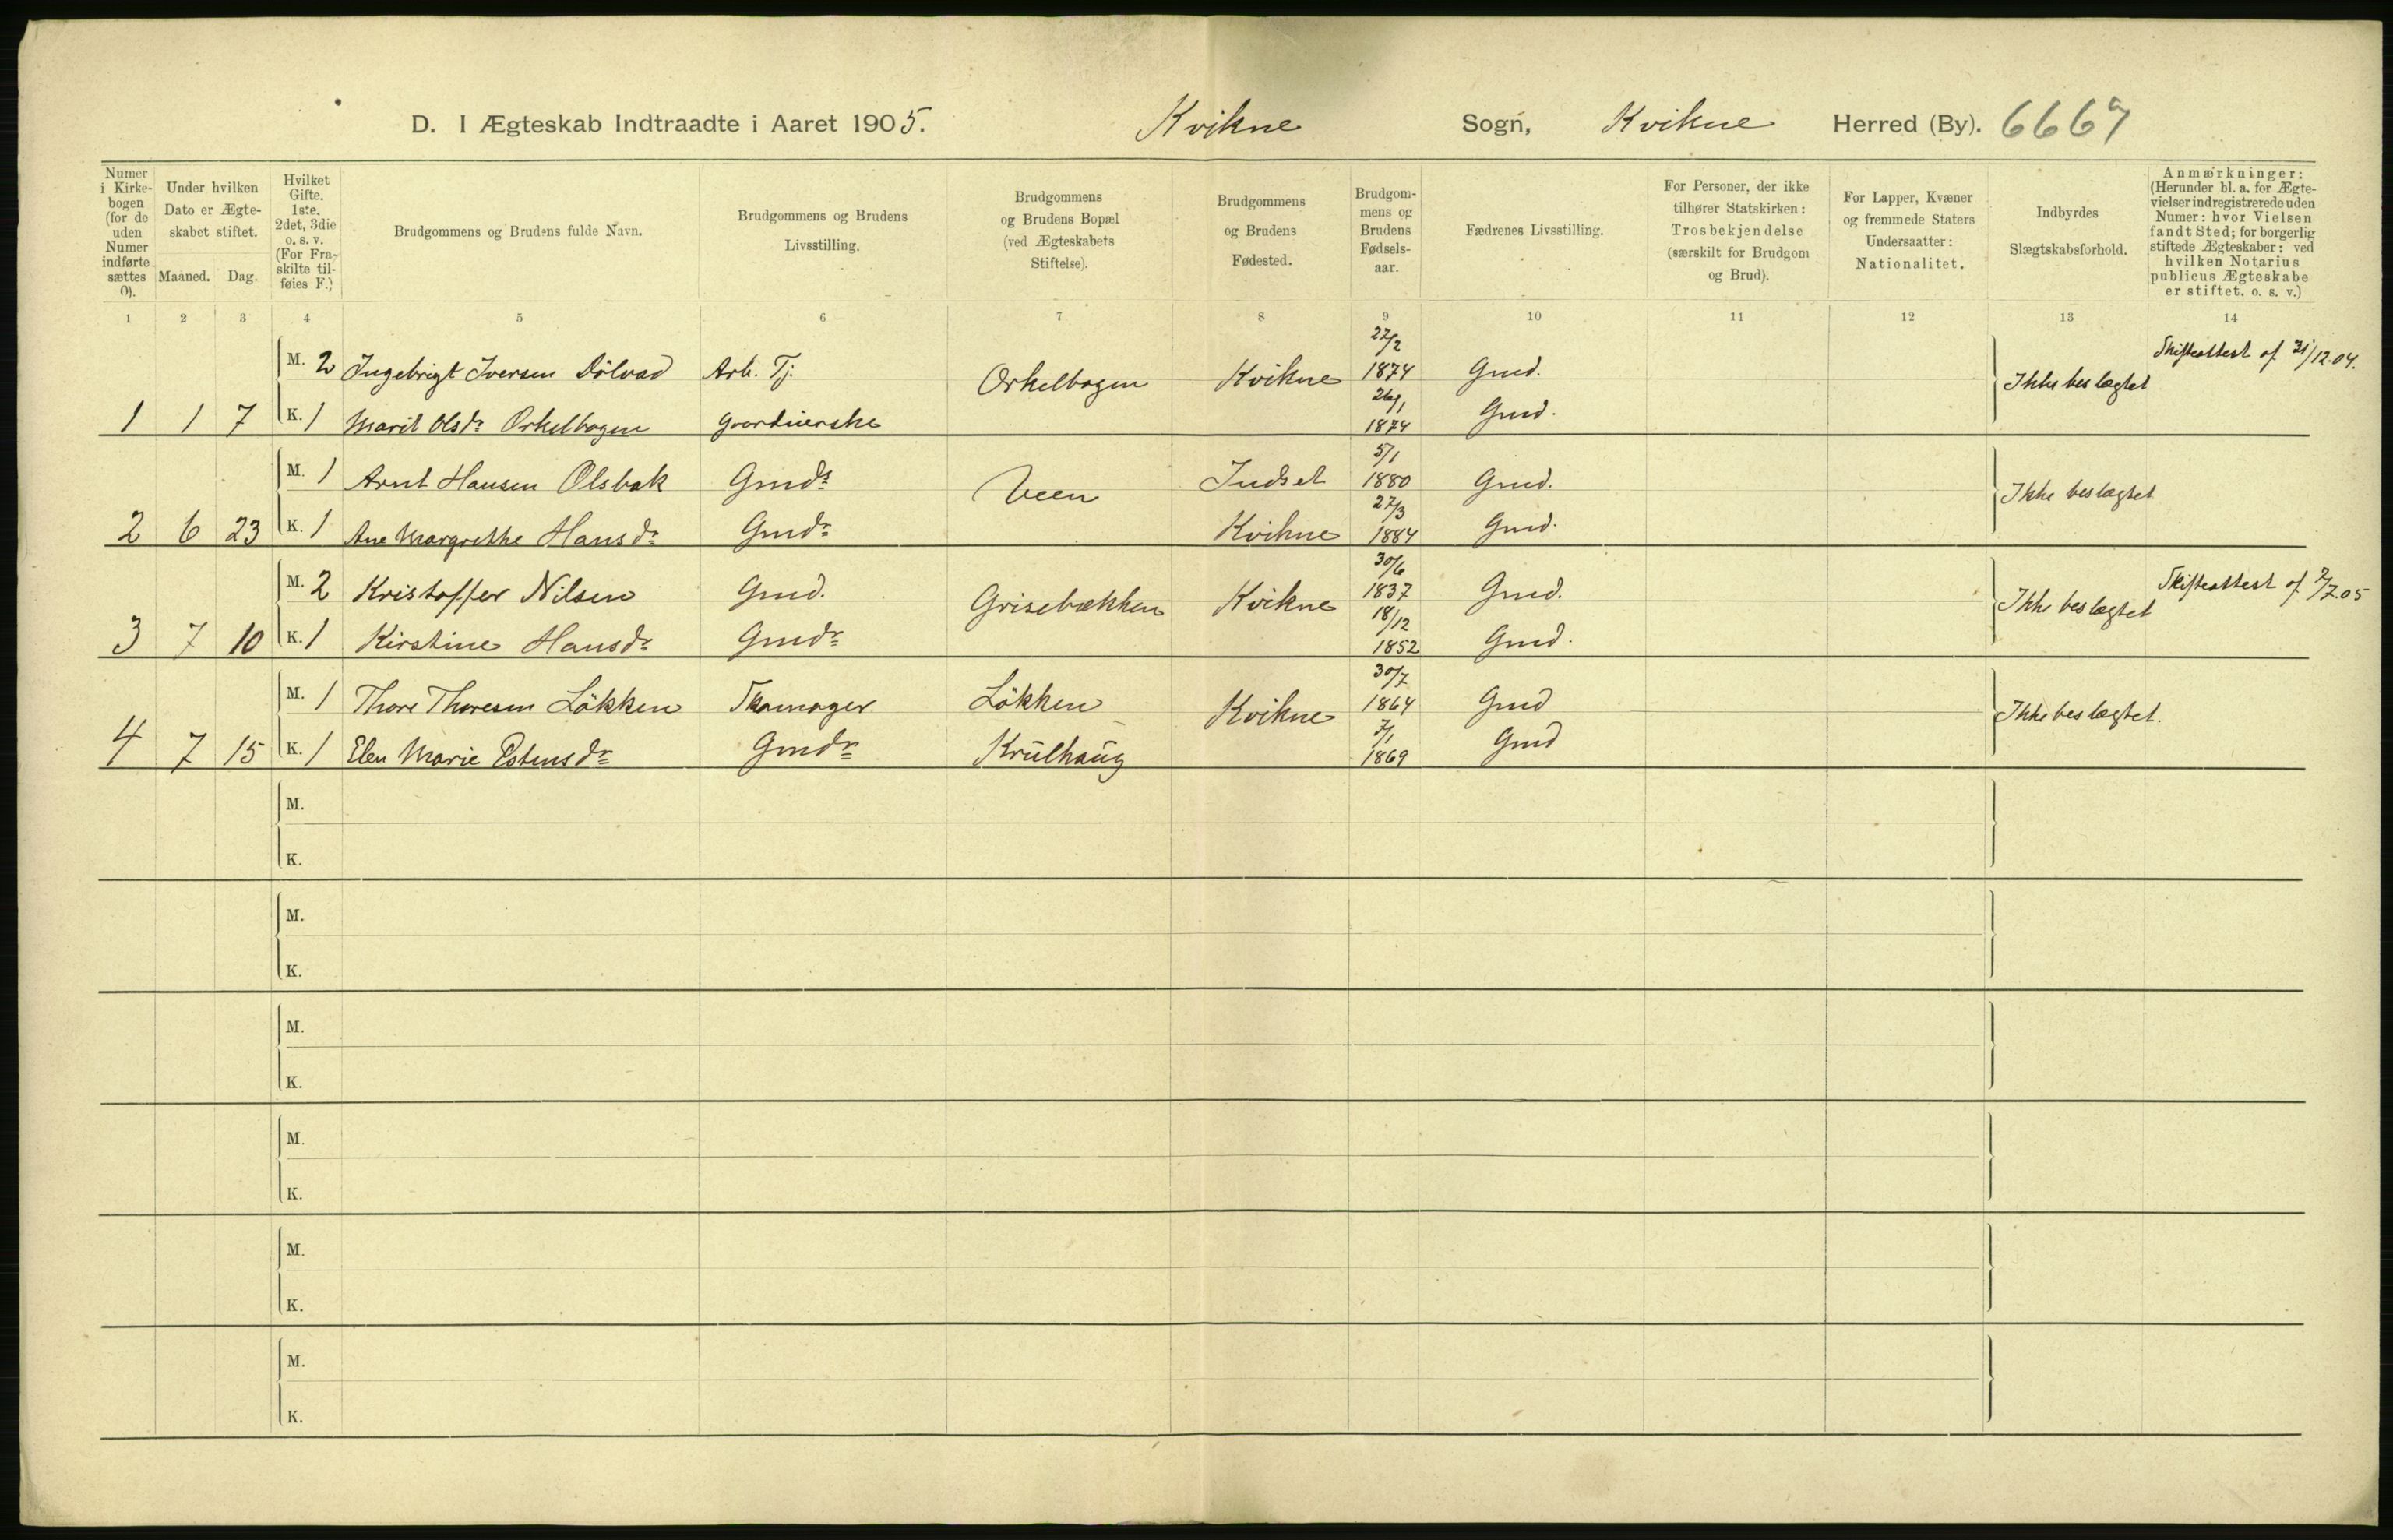 D. I Ægteskab Indtraadte i Aaret 1905. Kvikne Sogn, Kvikne Herred (By).
Numer i Kirkebogen (for de uden Numer indførte sættes 0).
Under hvilken Dato er Ægteskabet stiftet.
Maaned. Dag.
Hvilket Gifte. 1ste, 2det, 3die o. s. v. (For Fraskilte tilføies F.)
Brudgommens og Brudens fulde Navn.
Brudgommens og Brudens Livsstilling.
Brudgommens og Brudens Bopæl (ved Ægteskabets Stiftelse).
Brudgommens og Brudens Fødested.
Brudgommens og Brudens Fødselsaar.
Fædrenes Livsstilling.
For Personer, der ikke tilhører Statskirken: Trosbekjendelse (særskilt for Brudgom og Brud).
For Lapper, Kvæner og fremmede Staters Undersaatter: Nationalitet.
Indbyrdes Slægtskabsforhold.
Anmærkninger: (Herunder bl. a. for Ægtevielser indregistrerede uden Numer: hvor Vielsen fandt Sted; for borgerlig stiftede Ægteskaber: ved hvilken Notarius publicus Ægteskabet er stiftet, o. s. v.)
1 2 3 4 5 6 7 8 9 10 11 12 13 14
M. 2 Ingebrigt Iversen Dölvad Arb. Tj. Orkelbogen Kvikne 27/2 1874 Gmd. Ikke beslægtet Skifteattest af 31/12.04.
1 1 7 K. 1 Marit Olsdr Orkelbogen Gaardeierske 26/1 1874 Gmd.
M. 1 Arnt Hansen Olsbak Gmds Veen Indset 5/1 1880 Gmd. Ikke beslægtet
2 6 23 K. 1 Ane Margrethe Hansdr Gmdr Kvikne 27/3 1884 Gmd.
M. 2 Kristoffer Nilsen Gmd. Grisebækken Kvikne 30/6 1837 Gmd. Ikke beslægtet Skifteattest af 7/7.05
3 7 10 K. 1 Kirstine Hansdr Gmdr 18/12 1852 Gmd.
M. 1 Thore Thoresen Lökken Skomager Lökken Kvikne 30/7 1864 Gmd Ikke beslægtet.
4 7 15 K. 1 Elen Marie Estensdr Gmdr Krulhaug 7/1 1869 Gmd
M.
K.
M.
K.
M.
K.
M.
K.
M.
K.
M.
K.